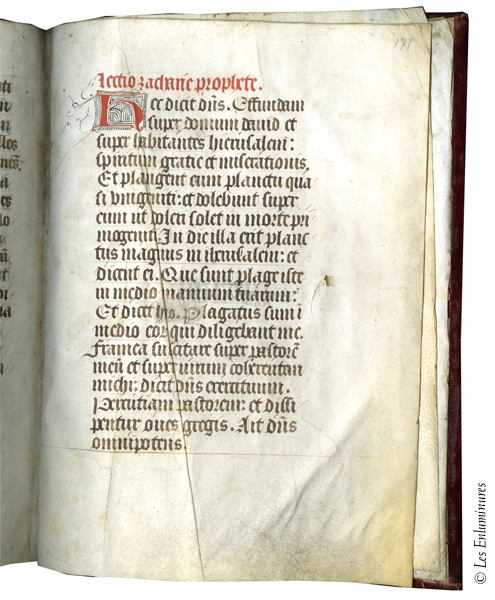 Lectio zacharie prophete.
Hec dicit dn̄s. Effundam
super domum dauid et
super habitantes hierusalem:
spiritum gratie et miserationis.
Et plangent eum planctu qua
si vnigeniti: et dolebunt super
eum ut doleri solet in morte pri
mogeniti. In die illa erit planc
tus magnus in iherusalem: et
dicent ei. Que sunt plage iste
in medio manuum tuarum:
Et dicet his. Plagatus sum ī
medio eor qui diligebant me.
Framea suscitare super pastorē
meū et super uirum coherentem
michi: dicit dn̄s exercituum.
Percutiam pastorem: et dissi
pentur oues gregis. Ait dn̄s
omnipotens.
© Les Enluminures